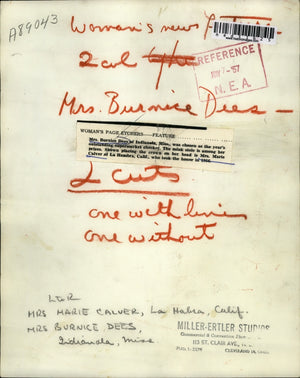 A89043
Woman's news
2 col
REFERENCE
'57
N.E.A.
Mrs. Burnice Dees —
WOMAN'S PAGE ETCHERS FEATURE
Mrs. Burnice Dees of Indianola, Miss., was chosen as the year's
outstanding supermarket checker. The mink stole is among her
prizes. Shown placing the crown on her head is Mrs. Marie
Calver of La Habra, Calif., who took the honor in 1956.
2 cuts
one with lines
one without
L to R
MRS MARIE CALVER, La Habra, Calif.
MRS BURNICE DEES,
Indianola, Miss.
MILLER-ERTLER STUDIOS
Commercial & Convention
113 ST. CLAIR AVE., N.
CLEVELAND 14, OHIO